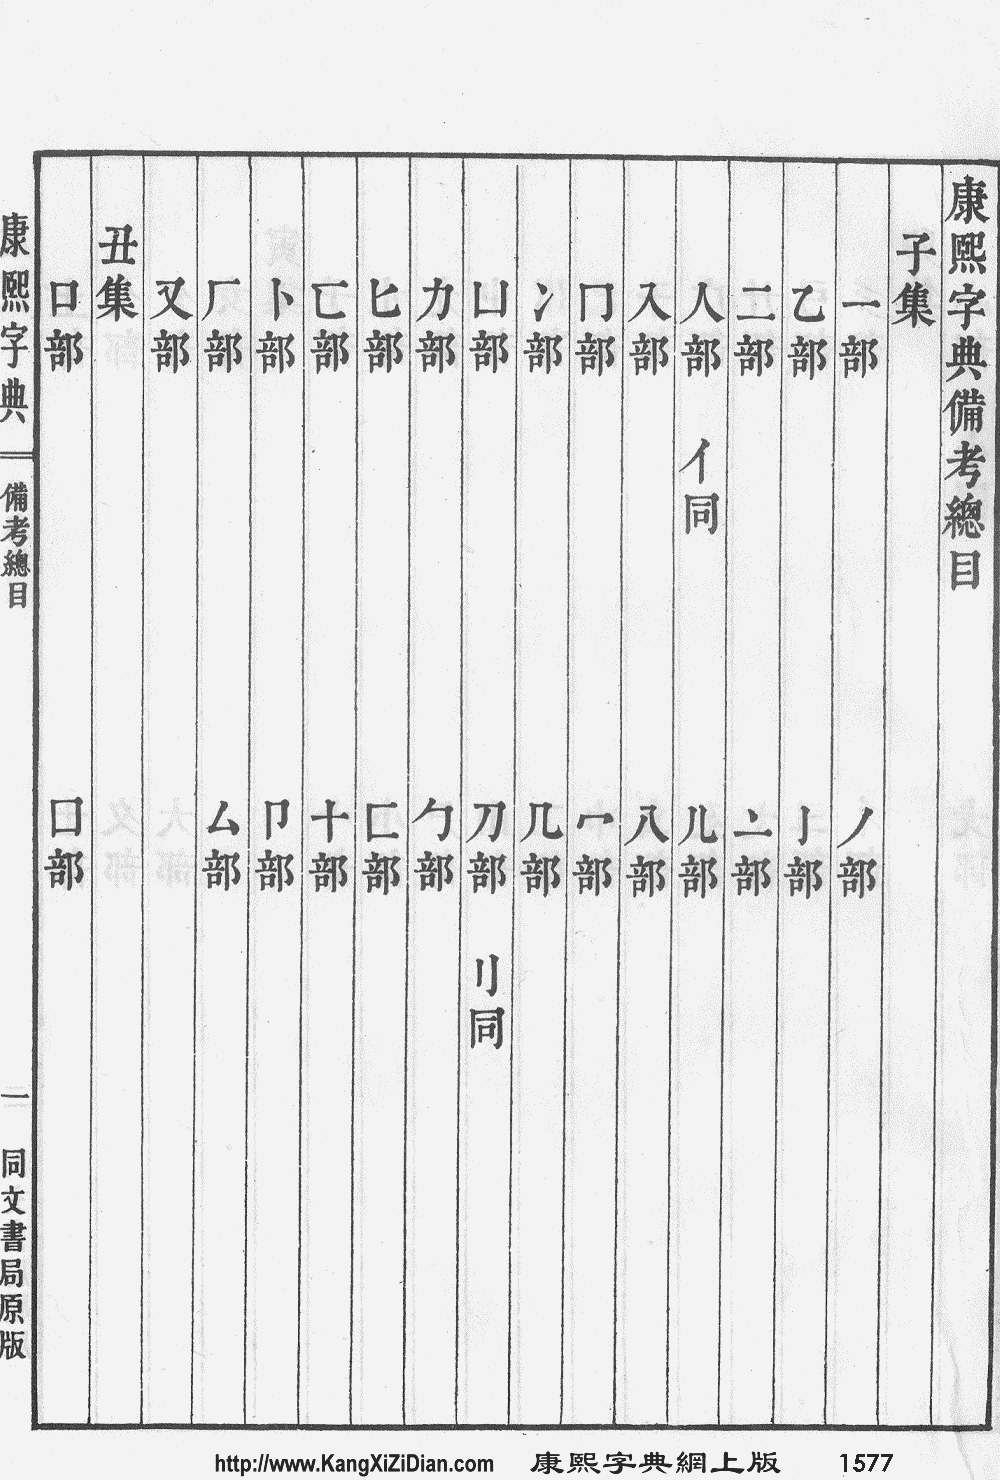 康熙字典備考總目
子集
一部 丿部
乙部 亅部
二部 亠部
人部 亻同 儿部
入部 八部
冂部 冖部
冫部 几部
凵部 刀部 刂同
力部 勹部
匕部 匚部
匸部 十部
卜部 卩部
厂部 厶部
又部
丑集
口部 囗部
康熙字典 備考總目 一 同文書局原版
http://www.KangXiZiDian.com 康熙字典網上版 1577